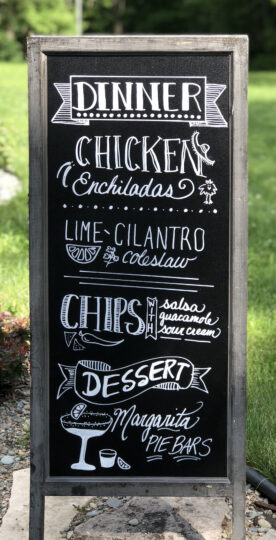 DINNER
CHICKEN
Enchiladas
LIME-CILANTRO
coleslaw
CHIPS WITH salsa
guacamole
sour cream
DESSERT
Margarita
PIE BARS